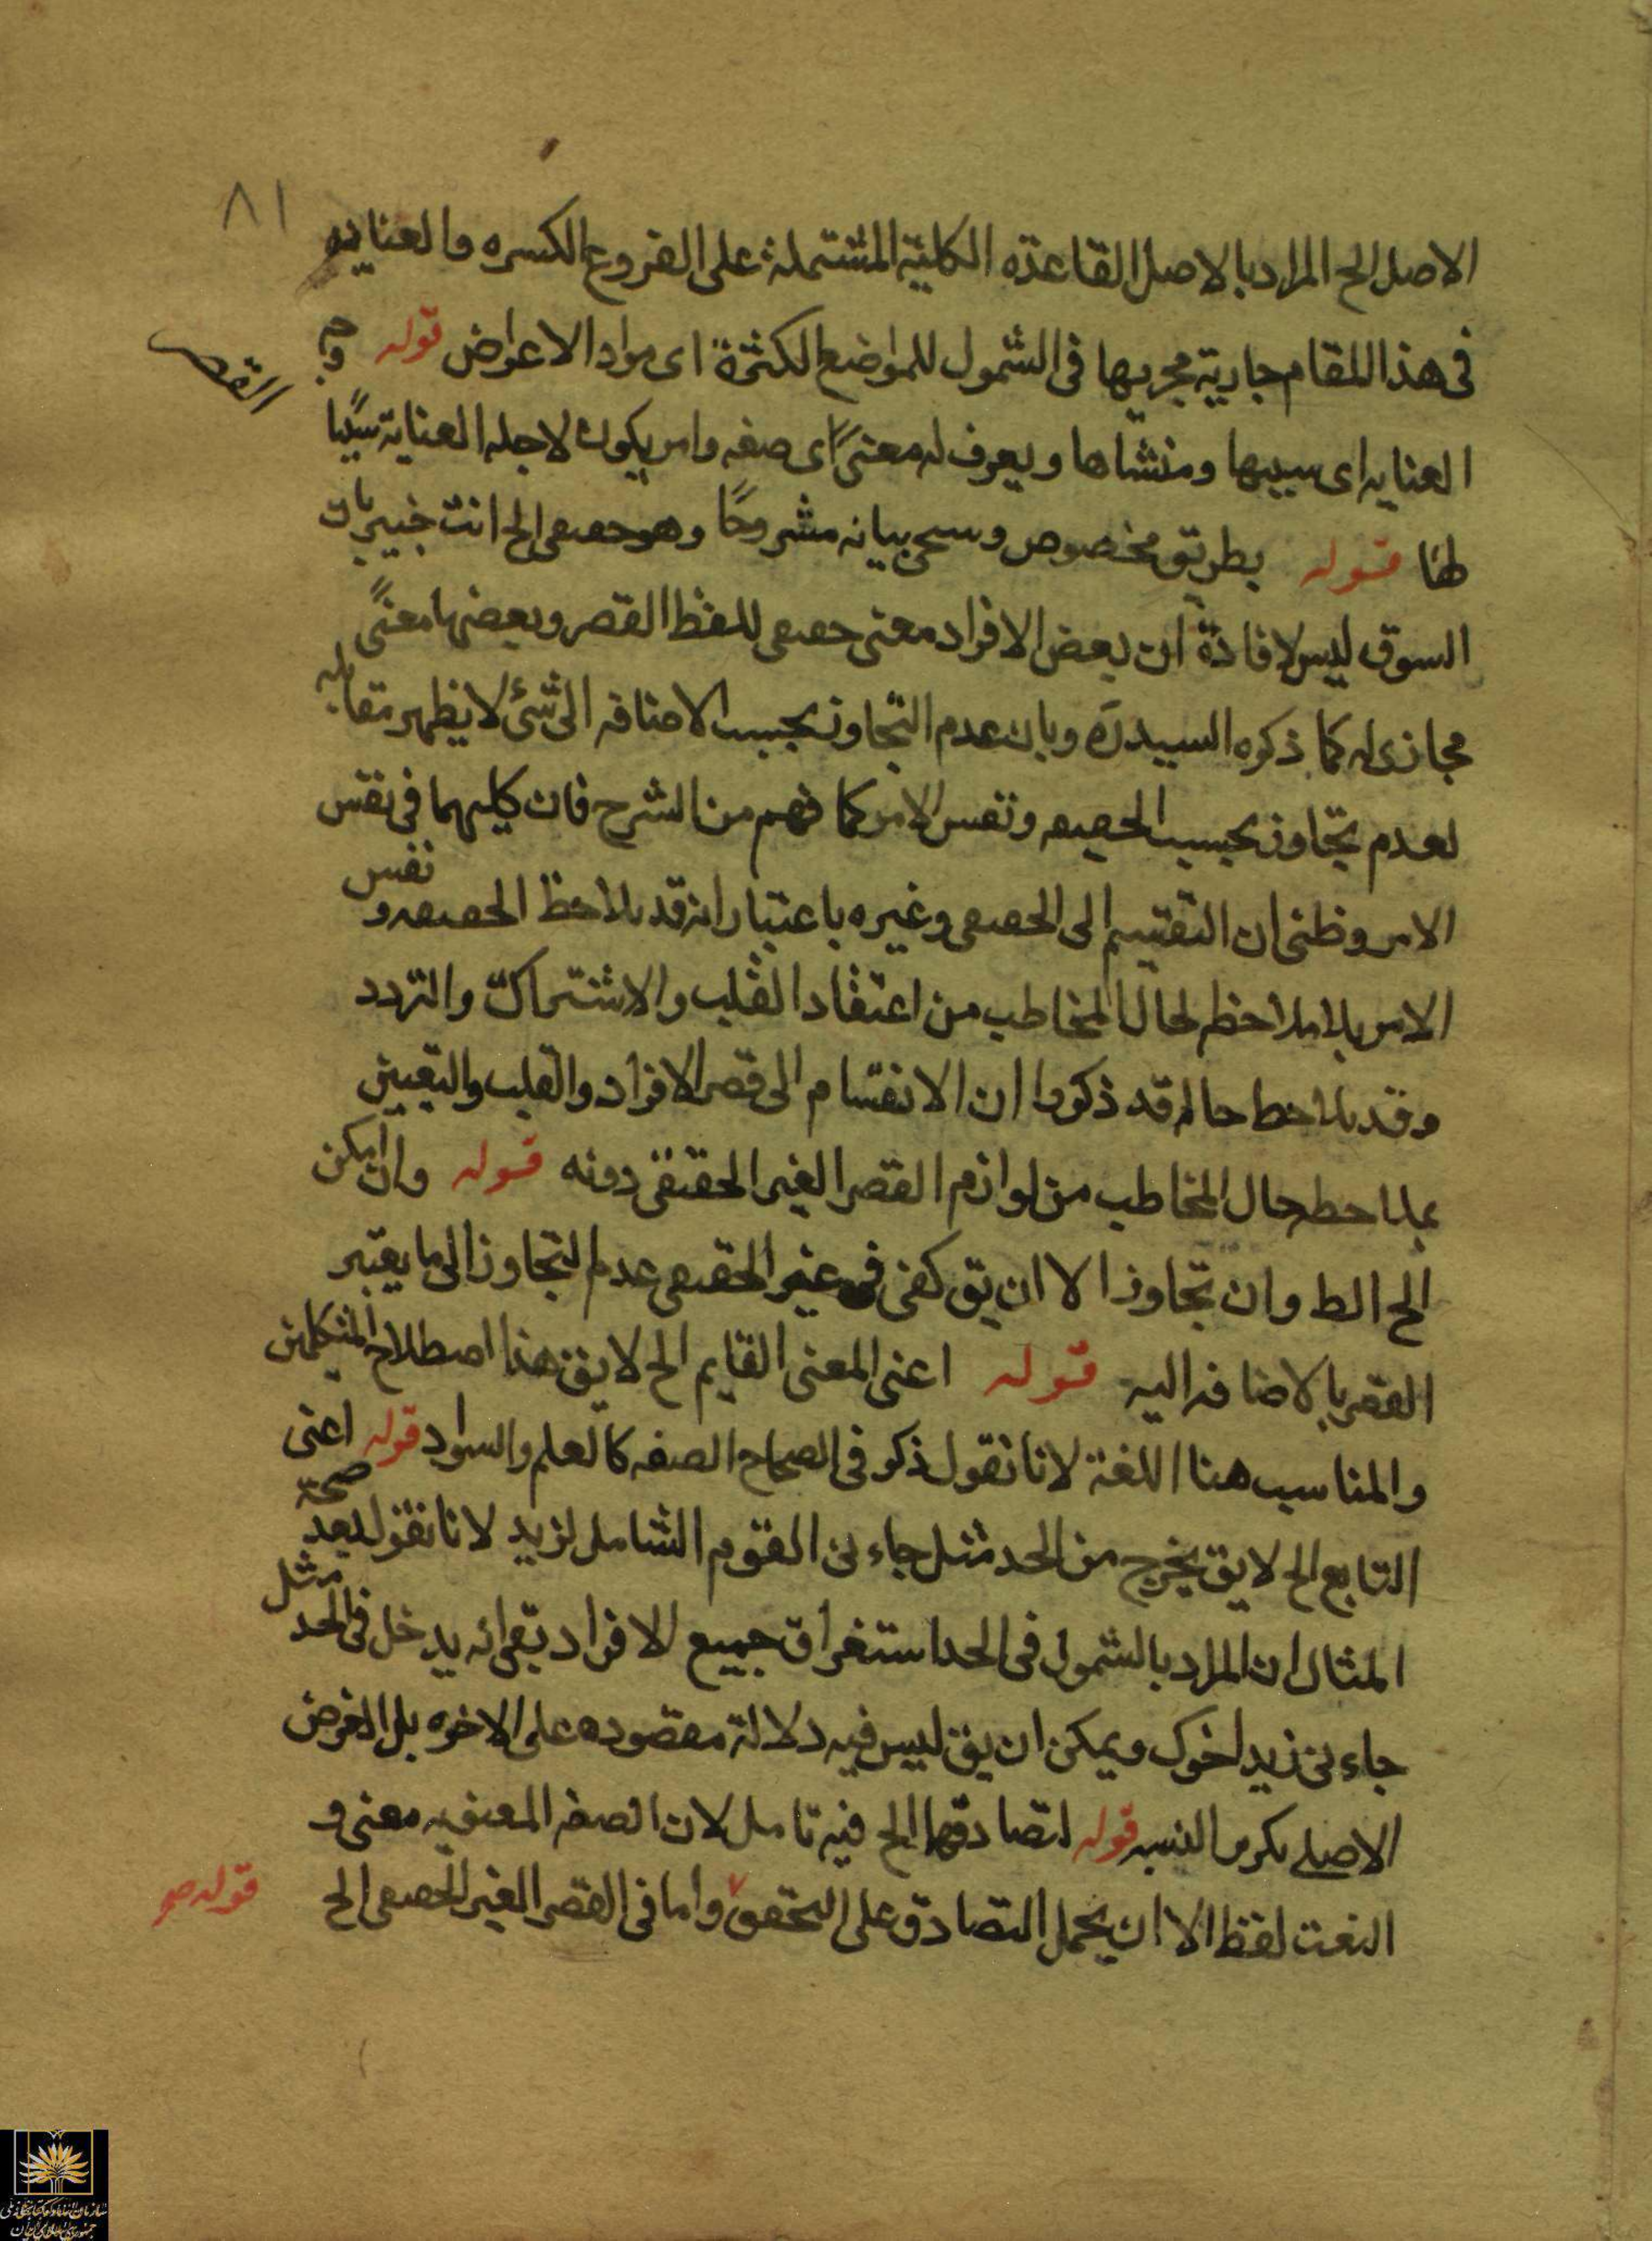 ٨١
الاصل الخ المراد بالاصل القاعدة الكلية المشتملة على الفروع الكسره والعنايه
فى هذا المقام جارية مجريها فى الشمول للمواضع الكثرة اى مواد الاعراض قوله وجه
القصر
العنايه اى سببها ومنشاها ويعرف له معنىً اى صفه وامر يكون لاجله العناية سببًا
لها قوله بطريق مخصوص وسىجى بيانه مشروحًا وهو حصعى الخ انت خبير بان
السوق ليس لافادة ان بعض الافراد معنى حصعى للفظ القصر وبعضها معنىً
مجازى له كما ذكره السيد ره وبان عدم التجاوز بحسب الاضافه الى شئ لا يظهر مقابله
لعدم تجاوز بحسب الحصعه ونفس الامر كما فهم من الشرح فان كليهما فى نفس
الامر وظنى ان التقسيم الى الحصعى وغيره باعتبار انه قد يلاحظ الحصعه و نفس
الامر بلا ملاحظه لحال المخاطب من اعتقاد القلب والاشتراك والتردد
وقد يلاحظ حاله قد ذكروا ان الانقسام الى قصر الافراد والقلب والتعيين
بملاحظه حال المخاطب من لوازم القصر الغير الحقيقى دونه قوله وان امكن
الخ الط وان تجاوزا الا ان يق كفى فى غير الحقيقى عدم التجاوز الى ما يعتبر
القصر بالاضافه اليه قوله اعنى المعنى القايم الخ لا يق هذا اصطلاح المتكلمين
والمناسب هنا اللغة لانا نقول ذكر فى الصحاح الصفه كالعلم والسواد قوله اعنى
التابع الخ لا يق يخرج من الحد مثل جاءنى القوم الشامل لزيد لانا نقول بعد صحة
المثال ان المراد بالشمول فى الحد استغراق جميع الافراد بقى انه يدخل فى الحد مثل
جاءنى زيد اخوك ويمكن ان يق ليس فيه دلالة مقصوده على الاخوه بل الغرض
الاصلى النسبه قوله لتصادقهما الخ فيه تامل لان الصفه المعنويه معنى و
النعت لفظ الا ان يحمل التصادق على التحقق واما فى القصر الغير الحصعى الخ
قوله